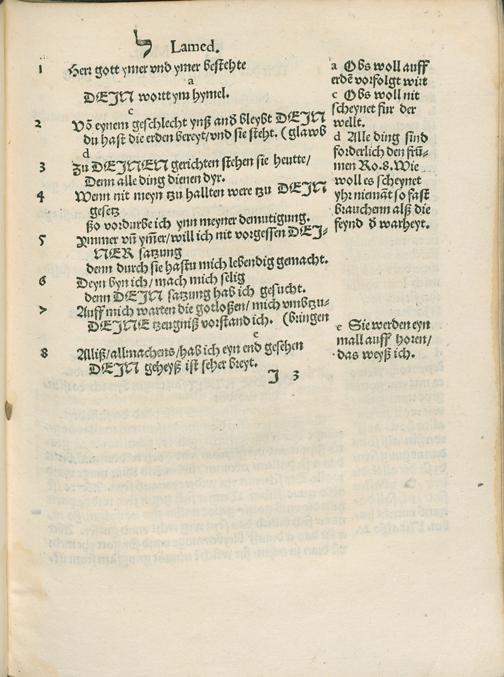 ל Lamed.
1 Herr gott ymer vnd ymer bestehte
a
DEIN wortt ym hymel.
c
2 Võ eynem geschlecht ynß and bleybt DEIN
du hast die erden bereyt/vnd sie steht. (glawb
d
3 Zu DEINEN gerichten stehen sie heutte/
Denn alle ding dienen dyr.
4 Wenn nit meyn tzu hallten were tzu DEIN
gesetz
ßo vordurbe ich ynn meyner demutigung.
5 Ymmer vñ ym̃er/will ich nit vorgessen DEI-
NER satzung
denn durch sie hastu mich lebendig gemacht.
6 Deyn byn ich/mach mich selig
denn DEIN satzung hab ich gesucht.
7 Auff mich warten die gotloßen/mich vmbzu-
DEINE tzeugniß vorstand ich. (bringen
e
8 Alliß/allmachens/hab ich eyn end gesehen
DEIN geheyß ist seher breyt.
J 3
a Obs woll auff
erdẽ vorfolgt wirt
c Obs woll nit
scheynet fur der
wellt.
d Alle ding sind
forderlich den frũ-
men Ro.8. Wie
woll es scheynet
yhr niemãt so fast
brauchenn alß die
feynd d̕ warheyt.
e Sie werden eyn
mall auff horen/
das weyß ich.